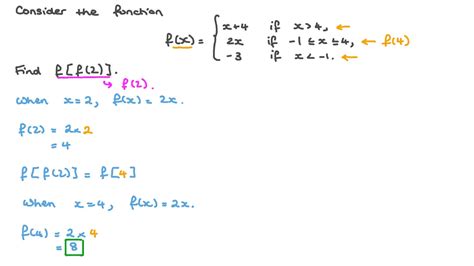 Consider the function
f(x) = { x+4 if x > 4, ←
2x if -1 ≤ x ≤ 4, ← f(4)
-3 if x < -1. ←
Find f[f(2)].
↳ f(2).
when x = 2, f(x) = 2x.
f(2) = 2 × 2
= 4
f[f(2)] = f[4]
when x = 4, f(x) = 2x.
f(4) = 2 × 4
= 8